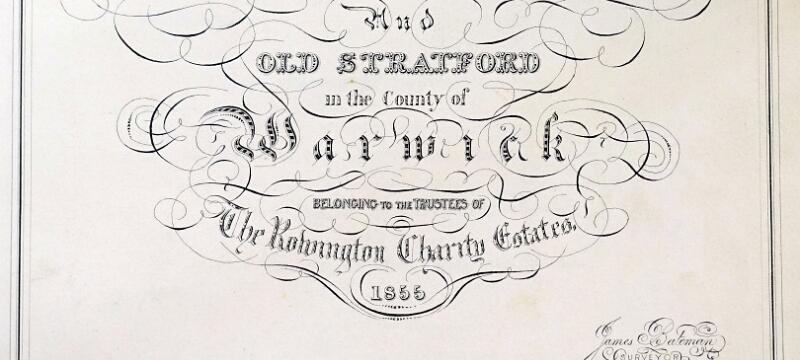 And
OLD STRATFORD
in the County of
Warwick
BELONGING TO THE TRUSTEES OF
The Rowington Charity Estates.
1855
James Bateman
SURVEYOR